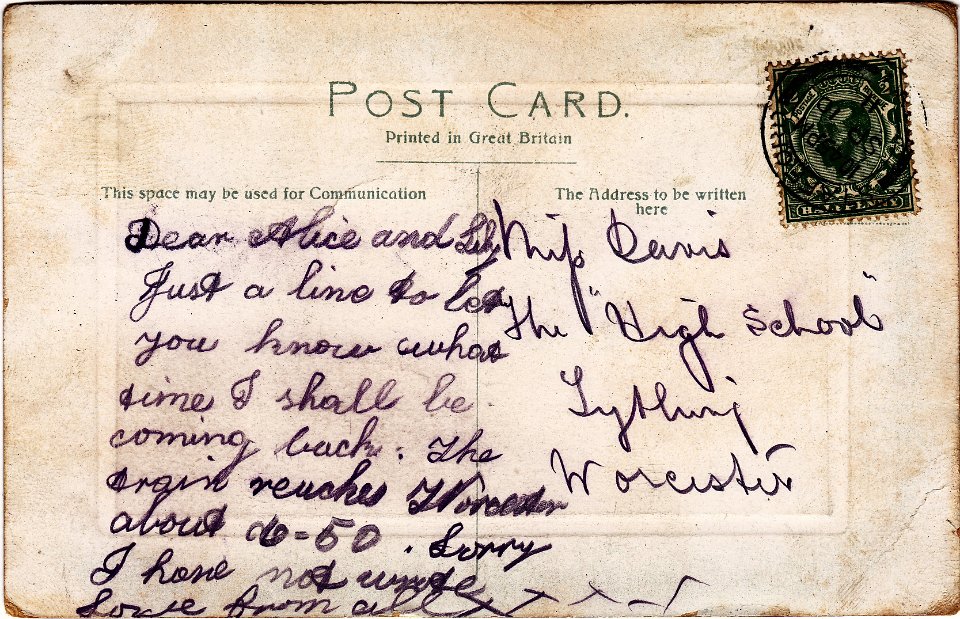 POST CARD.
Printed in Great Britain
This space may be used for Communication
The Address to be written
here
1/2
HALFPENNY
Dear Alice and Lily
Just a line to let
you know what
time I shall be
coming back. The
train reaches Worcester
about 6-50. Sorry
I have not wrote
Love from all x x x x
Miss Davis
The "High School"
Worcester